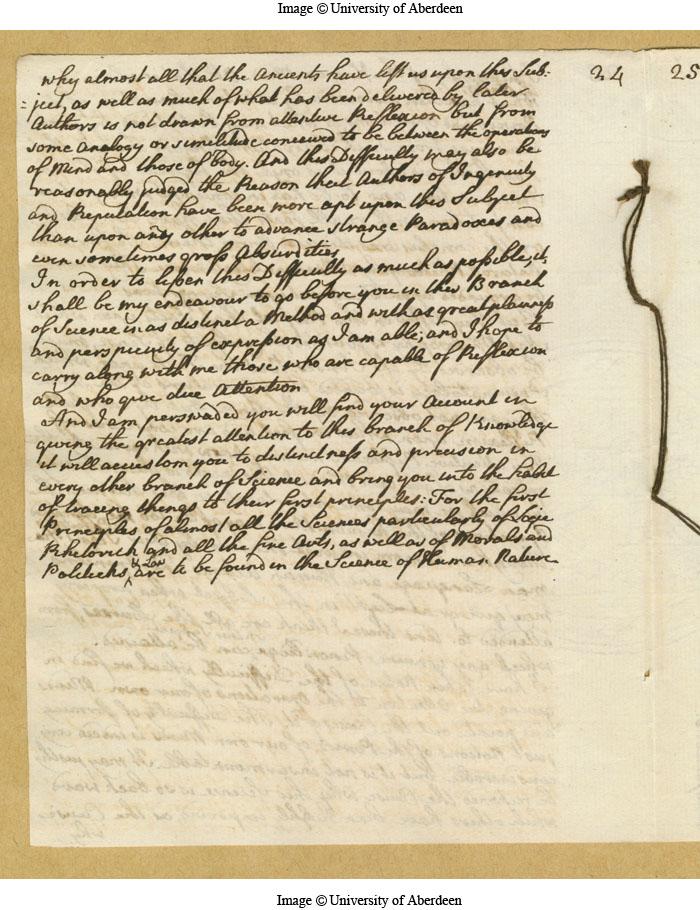 Image © University of Aberdeen
24
25
why almost all that the Ancients have left us upon this Sub-
=ject, as well as much of what has been delivered by later
Authors is not drawn from attentive Reflexion but from
some analogy or similitude conceived to be between the operations
of Mind and those of body. And this Difficulty may also be
reasonably judged the Reason that Authors of Ingenuity
and Reputation have been more apt upon this Subject
than upon any other to advance strange Paradoxes and
even sometimes gross Absurdities
In order to lessen this Difficulty as much as possible, it
shall be my endeavour to go before you in this Branch
of Science in as distinct a Method and with as great plainness
and perspicuity of expression as I am able; and I hope to
carry along with me those who are capable of Reflexion
and who give due Attention
And I am perswaded you will find your Account in
giving the greatest attention to this branch of Knowledge
it will accustom you to distinctness and precision in
every other branch of Science and bring you into the habit
of tracing things to their first principles: For the first
Principles of almost all the Sciences particularly of Logic
Rhetorick and all the fine Arts, as well as of Morals and
Politicks, & Law are to be found in the Science of Human Nature
Image © University of Aberdeen